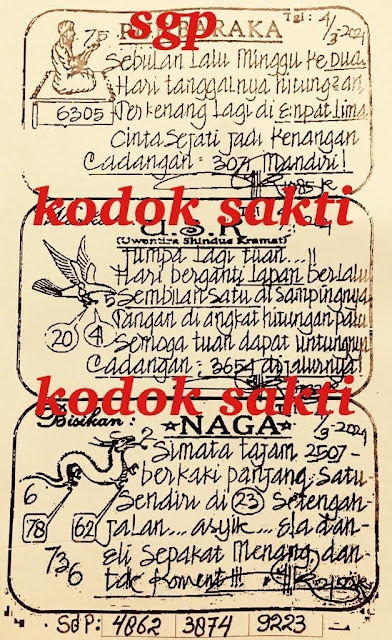 sgp
75
BARAKA
Tgl: 4/3-2021
Sebulan lalu Minggu ke Dua
Hari tanggalnya hitungan
6305
Terkenang lagi di Enpat lima
Cinta Sejati jadi Kenangan
Cadangan: 3071 Mandiri!
kodok sakti
U.S.K
(Uwentira Shindus Kramat)
Jumpa lagi tuan...!!
Hari berganti lapan berlalu
Sembilan satu di sampingnya
20
4
5
Tangan di angkat hitungan palu
Semoga tuan dapat untungnya
Cadangan: 3654 di jalurnya!
kodok sakti
Bisikan:
☆NAGA☆
/3-2021
2
Simata tajam 2507-
berkaki panjang, satu
6
Sendiri di 23 Setengah
78
62
jalan... asyik...
736
Sepakat Menang dan
tak koment!!!
SGP: 4862 3874 9223